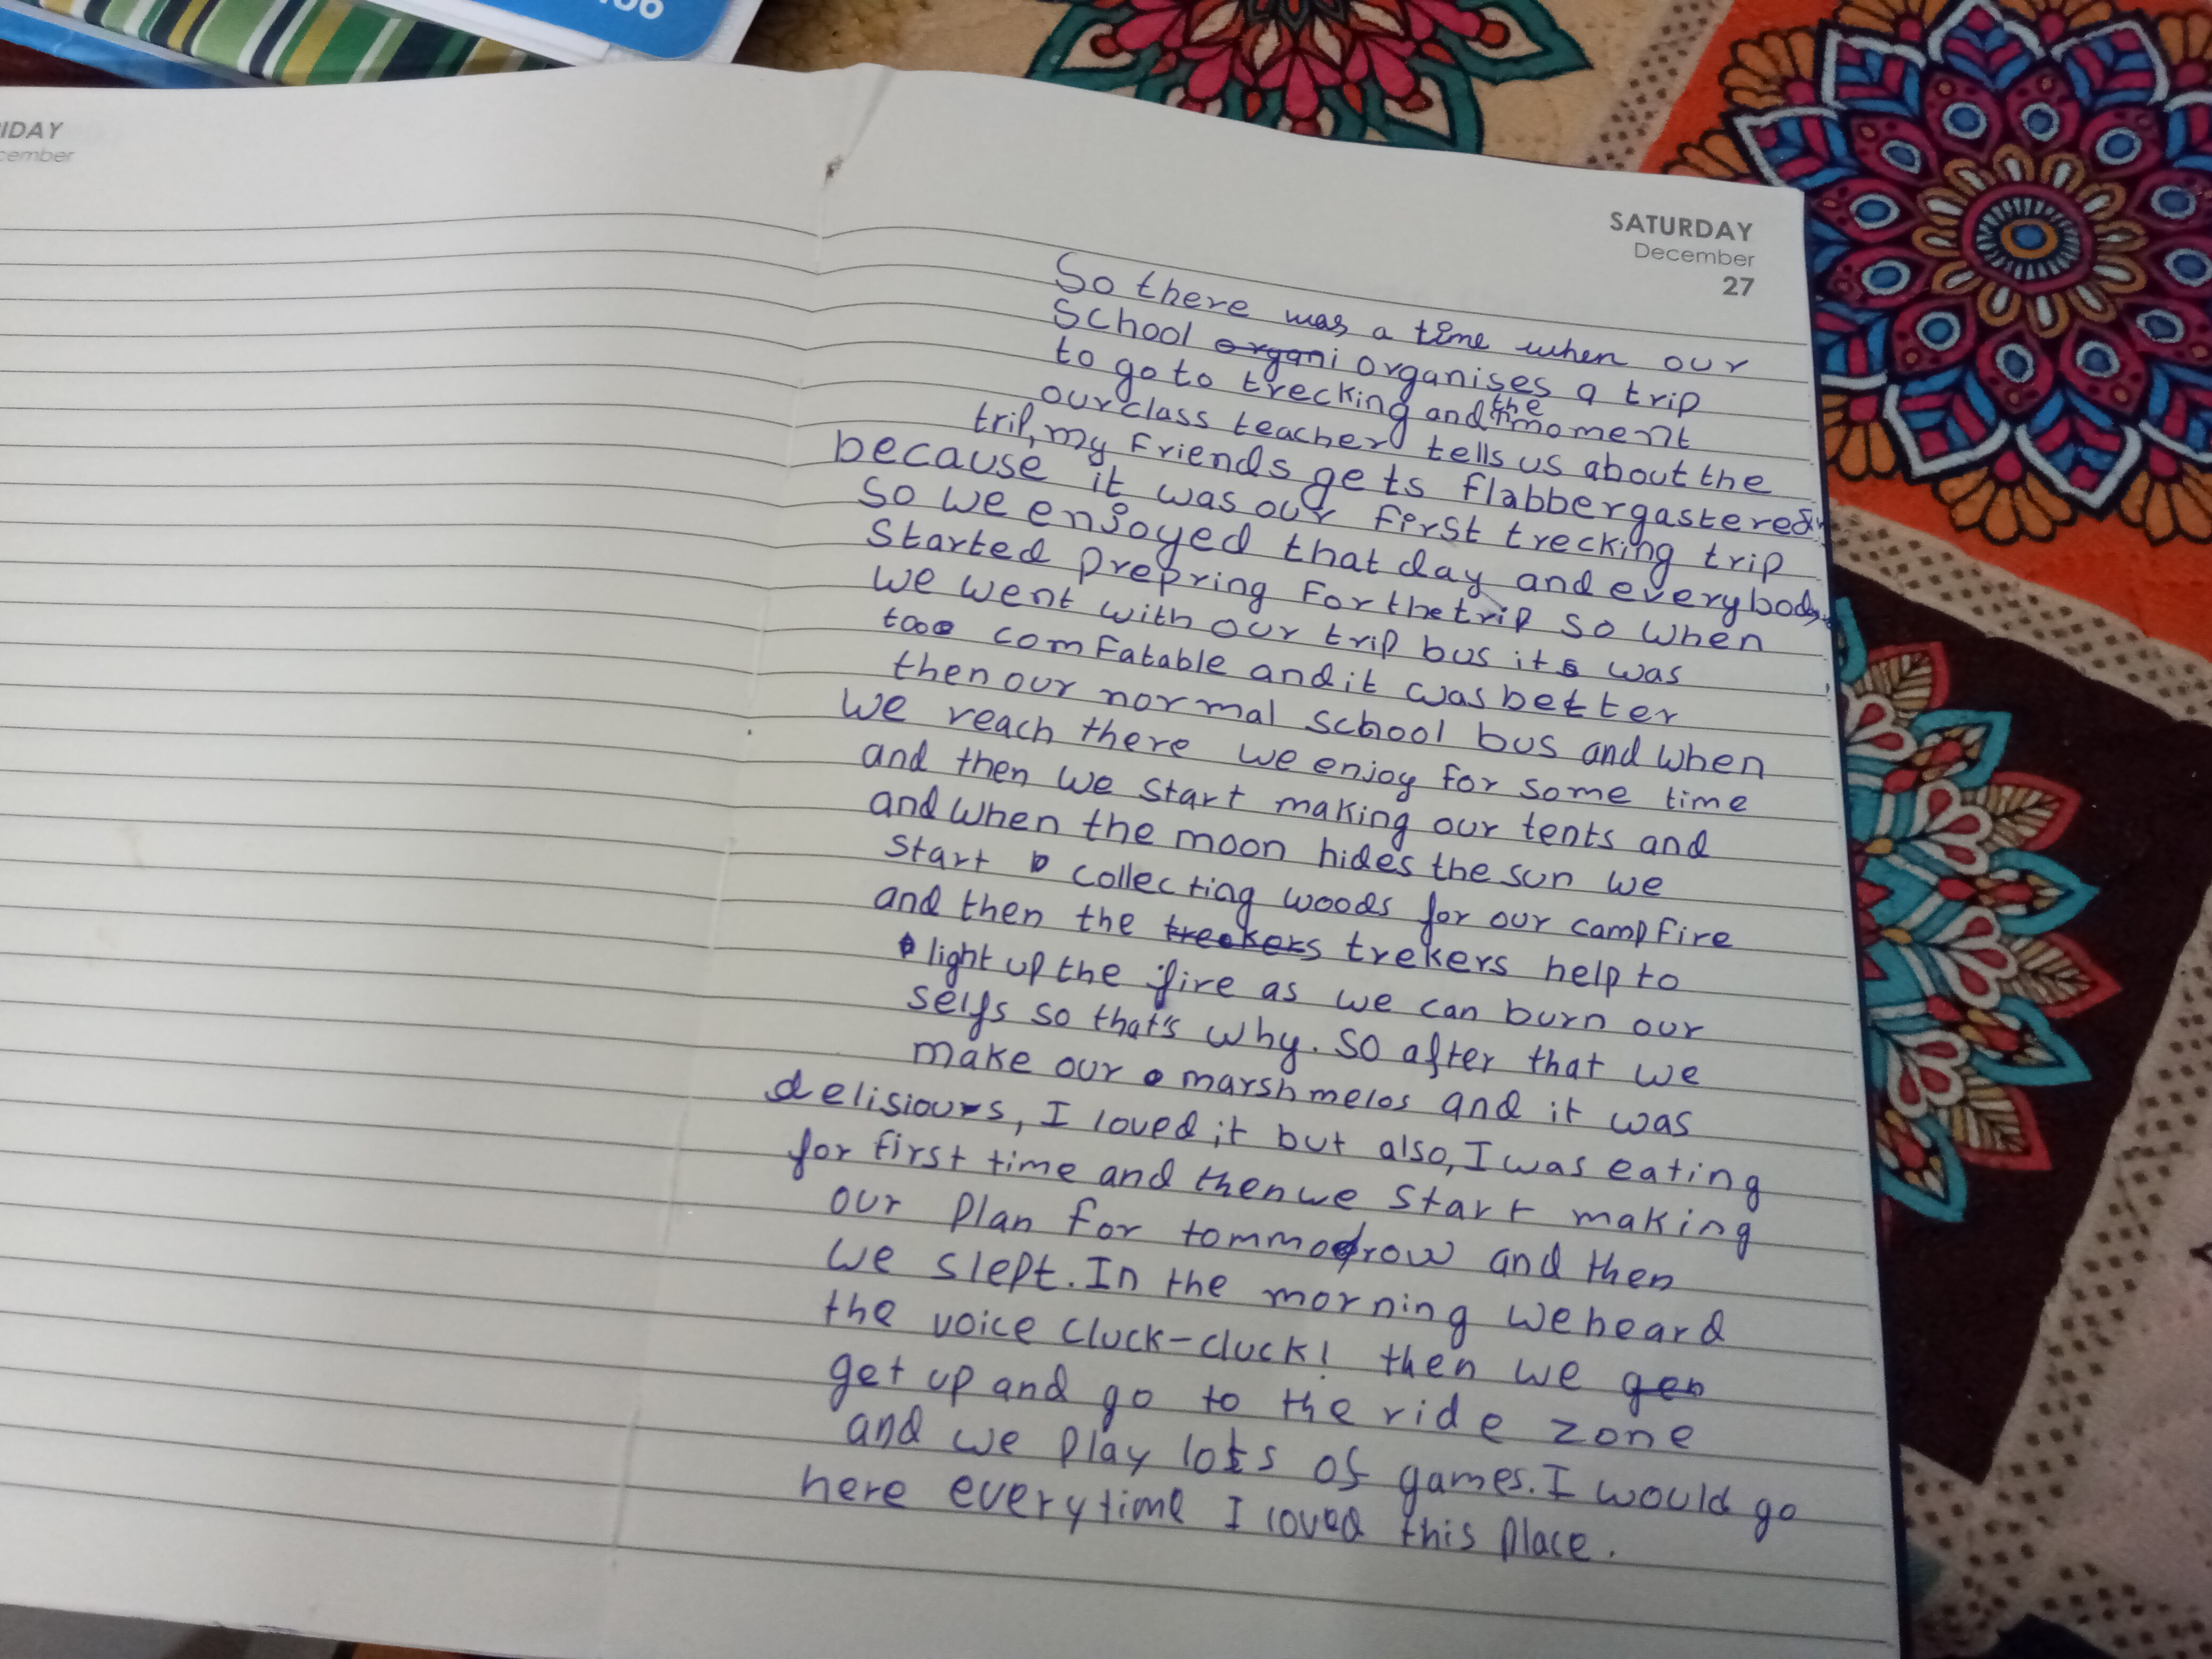 IDAY
cember
SATURDAY
December
27
So there was a time when our
School organi organises a trip
to go to trecking and the moment
our class teacher tells us about the
trip, my friends gets flabbergastered
because it was our first trecking trip
so we enjoyed that day and everybody
Started prepring for the trip so when
we went with our trip bus its was
too comfatable and it was better
then our normal school bus and when
we reach there we enjoy for some time
and then we start making our tents and
and when the moon hides the sun we
start collecting woods for our campfire
and then the treekers trekers help to
light up the fire as we can burn our
selfs so that's why. So after that we
make our marshmelos and it was
delisious, I loved it but also, I was eating
for first time and then we start making
our plan for tommorow and then
we slept. In the morning we heard
the voice cluck-cluck! then we gen
get up and go to the ride zone
and we play lots of games. I would go
here everytime I loved this place.